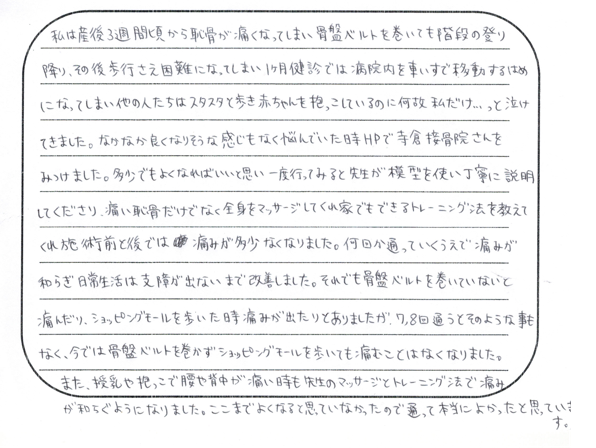 私は産後3週間頃から恥骨が痛くなってしまい骨盤ベルトを巻いても階段の登り
降り、その後歩行さえ困難になってしまい1ヶ月健診では病院内を車いすで移動するはめ
になってしまい他の人たちはスタスタと歩き赤ちゃんを抱っこしているのに何故私だけ…っと泣け
てきました。なかなか良くなりそうな感じもなく悩んでいた時HPで寺倉接骨院さんを
みつけました。多少でもよくなればいいと思い一度行ってみると先生が模型を使い丁寧に説明
してくださり、痛い恥骨だけでなく全身をマッサージしてくれ家でもできるトレーニング法を教えて
くれ施術前と後では痛みが多少なくなりました。何回か通っていくうえで痛みが
和らぎ日常生活は支障が出ないまで改善しました。それでも骨盤ベルトを巻いていないと
痛んだり、ショッピングモールを歩いた時痛みが出たりとありましたが、7,8回通うとそのような事も
なく、今では骨盤ベルトを巻かずショッピングモールを歩いても痛むことはなくなりました。
また、授乳や抱っこで腰や背中が痛い時も先生のマッサージとトレーニング法で痛み
が和らぐようになりました。ここまでよくなると思っていなかったので通って本当によかったと思っていま
す。